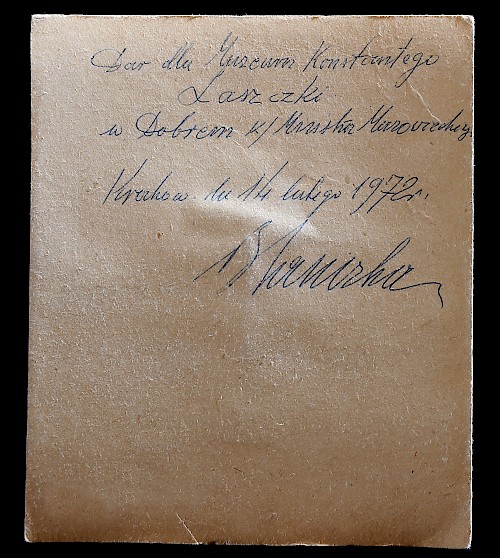 Dar dla Muzeum Konstantego
Laszczki
w Dobrem k/ Mińska Mazowieckiego
Kraków dn 14 lutego 1972 r.